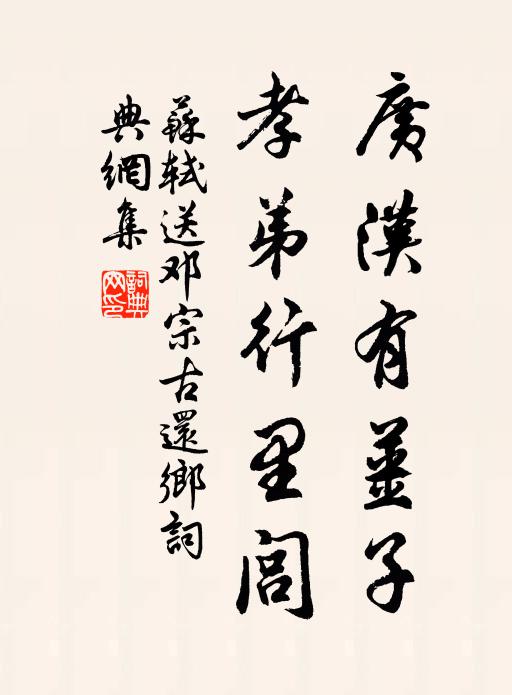 廣漢有薑子
孝弟行里閭
蘇軾送邓宗古還鄉詞
典網集
詞典
网印